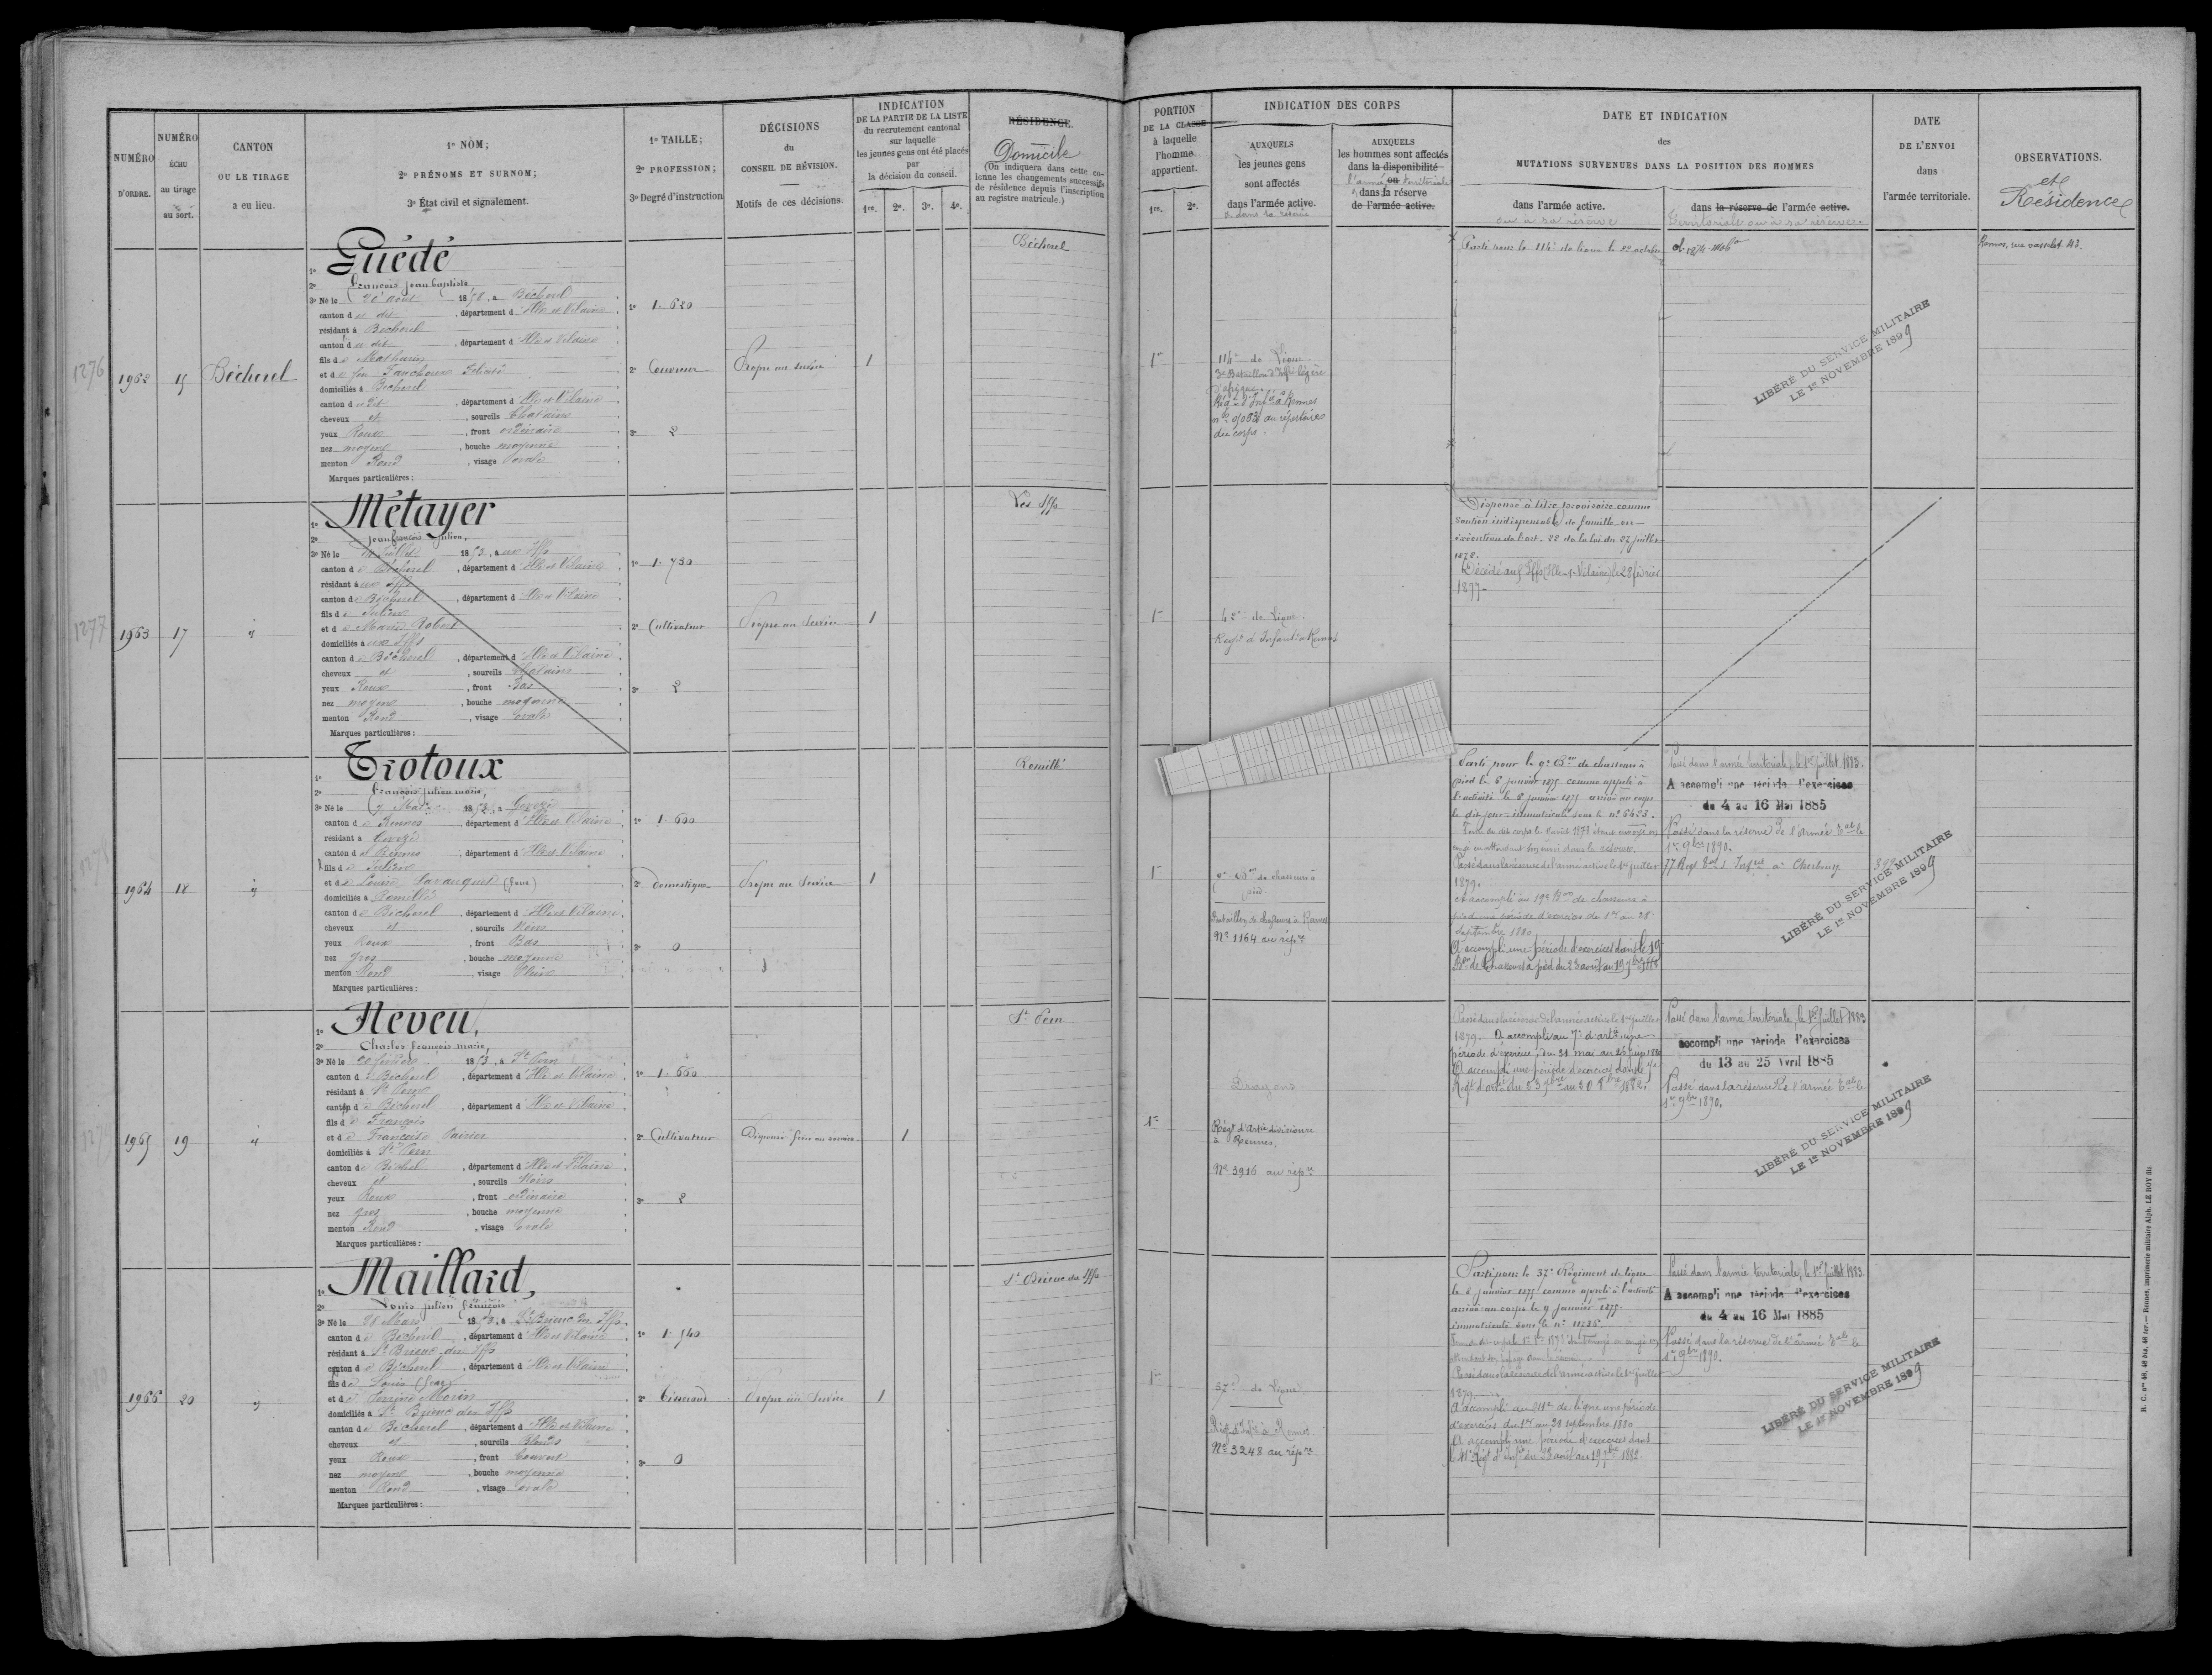 NUMÉRO D'ORDRE.
NUMÉRO ÉCHU au tirage au sort.
CANTON OU LE TIRAGE a eu lieu.
1º NOM;
2º PRÉNOMS ET SURNOM;
3º État civil et signalement.
1º TAILLE;
2º PROFESSION;
3º Degré d'instruction
DÉCISIONS du CONSEIL DE RÉVISION.
Motifs de ces décisions.
INDICATION DE LA PARTIE DE LA LISTE
du recrutement cantonal
sur laquelle
les jeunes gens ont été placés
par
la décision du conseil.
1re. 2e. 3e. 4e.
RÉSIDENCE.
Domicile
(On indiquera dans cette colonne les changements successifs de résidence depuis l'inscription au registre matricule.)
PORTION DE LA CLASSE à laquelle l'homme appartient.
1re. 2e.
INDICATION DES CORPS
AUXQUELS les jeunes gens sont affectés dans l'armée active.
& dans sa réserve
AUXQUELS les hommes sont affectés dans la disponibilité ou dans la réserve de l'armée active.
l'armée territoriale
DATE ET INDICATION
des
MUTATIONS SURVENUES DANS LA POSITION DES HOMMES
dans l'armée active.
ou à sa réserve
dans la réserve de l'armée active.
territoriale ou à sa réserve.
DATE DE L'ENVOI dans l'armée territoriale.
OBSERVATIONS.
et
Résidence
1276
1962
15
Bécherel
1º Guédé
2º François jean baptiste
3º Né le 20 août 1853, à Bécherel
canton du dit, département d'Ille et Vilaine
résidant à Bécherel
canton du dit, département d'Ille et Vilaine
fils de Mathurin
et de feu Fauchoux Félicité
domiciliés à Bécherel
canton du dit, département d'Ille et Vilaine
cheveux et, sourcils Chatains
yeux Roux, front ordinaire
nez moyen, bouche moyenne
menton Rond, visage Ovale
Marques particulières :
1º 1. 620
2º Couvreur
3º 2
Propre au service
1
Bécherel
1re
114e de Ligne
3e Bataillon d'Infie légère d'afrique.
Régt d'Infie à Rennes
au répertoire
du corps.
Parti pour le 114e de ligne le 22 octobre
Rennes, rue vasselot 42.
LIBÉRÉ DU SERVICE MILITAIRE
LE 1er NOVEMBRE 1899
1277
1963
17
1º Métayer
2º jean françois julien,
3º Né le Juillet 1853, à aux Iffs
canton de Bécherel, département d'Ille et Vilaine
résidant à aux Iffs
canton de Bécherel, département d'Ille et Vilaine
fils de Julien
et de Marie Robert
domiciliés à aux Iffs
canton de Bécherel, département d'Ille et Vilaine
cheveux et, sourcils Chatains
yeux Roux, front Bas
nez moyen, bouche moyenne
menton Rond, visage Ovale
Marques particulières :
1º 1. 730
2º Cultivateur
3º 2
Propre au Service
1
Les Iffs
1re
42e de Ligne.
Régt d'Infantie à Rennes
Dispensé à titre provisoire comme
soutien indispensable de famille en
exécution de l'art. 22 de la loi du 27 juillet
1872.
Décédé aux Iffs (Ille-et-Vilaine) le 28 février
1877.
1964
18
1º Trotoux
2º François julien marie,
3º Né le 7 Mai 1853, à Gevezé
canton de Rennes, département d'Ille et Vilaine
résidant à Gevezé
canton de Rennes, département d'Ille et Vilaine
fils de Julien
et de Louise (feue)
domiciliés à Romillé
canton de Bécherel, département d'Ille et Vilaine
cheveux et, sourcils Noirs
yeux Roux, front Bas
nez gros, bouche moyenne
menton Rond, visage Plein
Marques particulières :
1º 1. 600
2º Domestique
3º 0
Propre au Service
1
Romillé
1re
9e Bon de chasseurs à pied.
Bataillon de chasseurs à Rennes
No 1164 au répre
Parti pour le 9e Bon de chasseurs à
pied le 8 janvier 1875 comme appelé à
l'activité le 8 janvier 1875 arrivé au corps
le dit jour immatriculé sous le no 5625.
Passé dans la réserve de l'armée active le 1er juillet
1879.
A accompli au 19e Bon de chasseurs à
pied une période d'exercices du 1er au 28
Septembre 1880
A accompli une période d'exercices dans le 19
Bon de Chasseurs à pied du 23 août au 19 7bre 1882
Passé dans l'armée territoriale, le 1er juillet 1883.
A accompli une période d'exercices
du 4 au 16 Mai 1885
Passé dans la réserve de l'armée tale le
1er 9bre 1890.
77 Regt à Cherbourg
LIBÉRÉ DU SERVICE MILITAIRE
LE 1er NOVEMBRE 1899
1965
19
1º Neveu,
2º Charles françois marie,
3º Né le 20 février 1853, à St Pern
canton de Bécherel, département d'Ille et Vilaine
résidant à St Pern
canton de Bécherel, département d'Ille et Vilaine
fils de François
et de Françoise
domiciliés à St Pern
canton de Bécherel, département d'Ille et Vilaine
cheveux et, sourcils Noirs
yeux Roux, front ordinaire
nez gros, bouche moyenne
menton Rond, visage Ovale
Marques particulières :
1º 1. 660
2º Cultivateur
3º 2
Dispensé frère au service.
1
St Pern
1re
Dragons
Régt d'Artie divisionre à Rennes.
No 3916 au répre
Passé dans la réserve de l'armée active le 1er juillet
1879. A accompli au 7e d'artie une
période d'exercices du 31 mai au 26 juin 1880
A accompli une période d'exercices dans le 7e
Régt d'artie du 23 7bre au 20 8bre 1882.
Passé dans l'armée territoriale, le 1er Juillet 1883
accompli une période d'exercices
du 13 au 25 Avril 1885
Passé dans la réserve de l'armée tale le
1er 9bre 1890.
LIBÉRÉ DU SERVICE MILITAIRE
LE 1er NOVEMBRE 1899
1966
20
1º Maillard,
2º Louis julien françois
3º Né le 28 Mars 1853, à St Brieuc des Iffs
canton de Bécherel, département d'Ille et Vilaine
résidant à St Brieuc des Iffs
canton de Bécherel, département d'Ille et Vilaine
fils de Louis (feu)
et de Perrine Morin
domiciliés à St Brieuc des Iffs
canton de Bécherel, département d'Ille et Vilaine
cheveux et, sourcils Blonds
yeux Roux, front Couvert
nez moyen, bouche moyenne
menton Rond, visage Ovale
Marques particulières :
1º 1. 540
2º Tisserand
3º 0
Propre au Service
1
St Brieuc des Iffs
1re
37e de Ligne.
Régt d'Infie à Rennes
No 3248 au répre
Parti pour le 37e Régiment de ligne
le 8 janvier 1875 comme appelé à l'activité
arrivé au corps le 9 janvier 1875.
immatriculé sous le no 11236.
Passé dans la réserve de l'armée active le 1er juillet
1879.
A accompli au 41e de ligne une période
d'exercices du 1er au 28 septembre 1880
A accompli une période d'exercices dans
le 41e Régt d'infie du 23 août au 19 7bre 1882.
Passé dans l'armée territoriale, le 1er Juillet 1883.
A accompli une période d'exercices
du 4 au 16 Mai 1885
Passé dans la réserve de l'armée tale le
1er 9bre 1890.
LIBÉRÉ DU SERVICE MILITAIRE
LE 1er NOVEMBRE 1899
R. C. nos 48, 48 bis, 48 ter. — Rennes, imprimerie militaire Alph. LE ROY fils